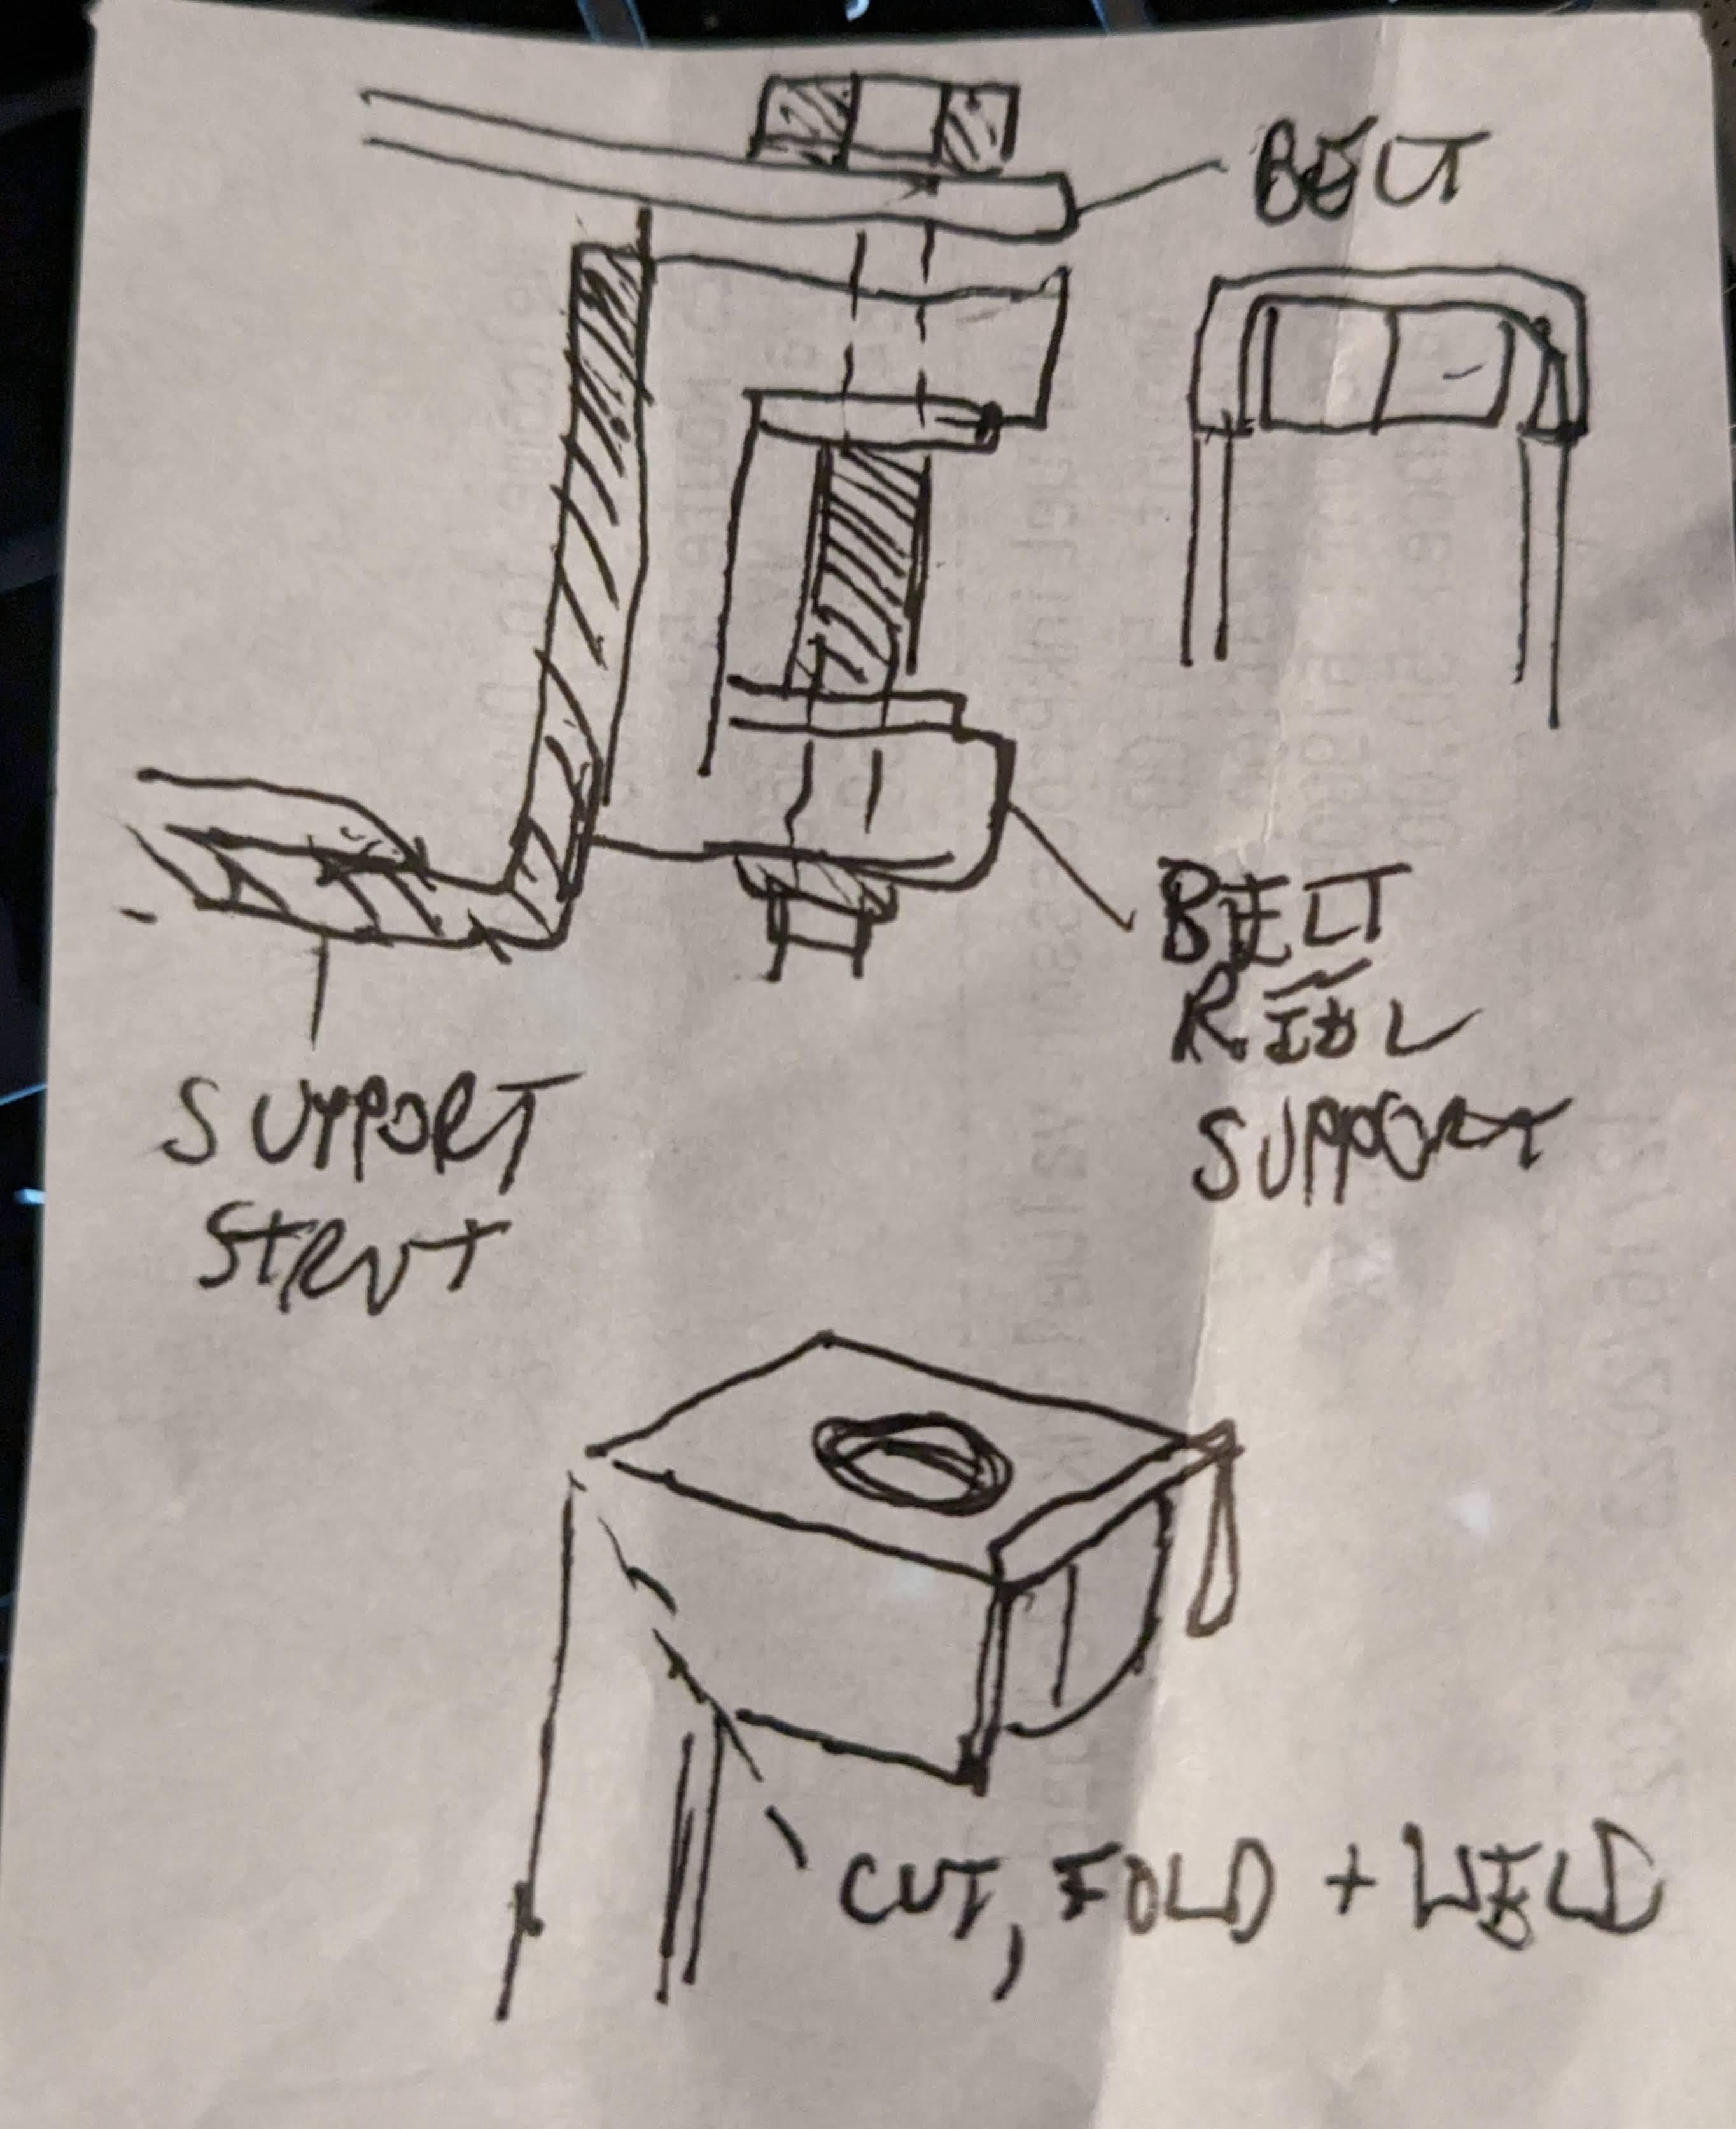 BELT
BELT
SUPPORT
SUPPORT
STRUT
CUT, FOLD + WELD